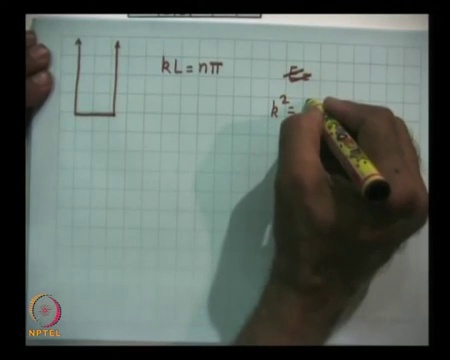 kL = nπ
E=
k² =
NPTEL